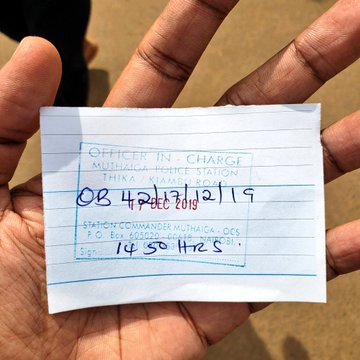 OFFICER IN - CHARGE
MUTHAIGA POLICE STATION
THIKA / KIAMBU ROAD
OB 42/17/12/19
17 DEC 2019
STATION COMMANDER MUTHAIGA - OCS
P. O. Box 605020 - 00619, NAIROBI
14 50 HRS.
Sign